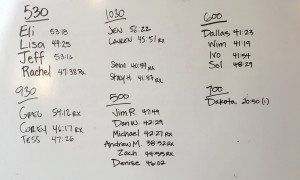 530
Eli 53:18
Lisa 47:25
Jeff 53:16
Rachel 47:38 RX
930
Greg 54:12 RX
Corey 46:17 RX
Tess 47:26
1030
Jen 56:22
Lauren 45:51 RX
Sean 40:57 RX
Shay H. 41:37 RX
500
Jim R. 47:49
Dan W. 42:29
Michael 42:27 RX
Andrew M. 38:52 RX
Zach 44:55 RX
Denise 46:02
600
Dallas 41:23
Wim 41:19
Ivo 41:54
Sol 48:29
700
Dakota 20:50